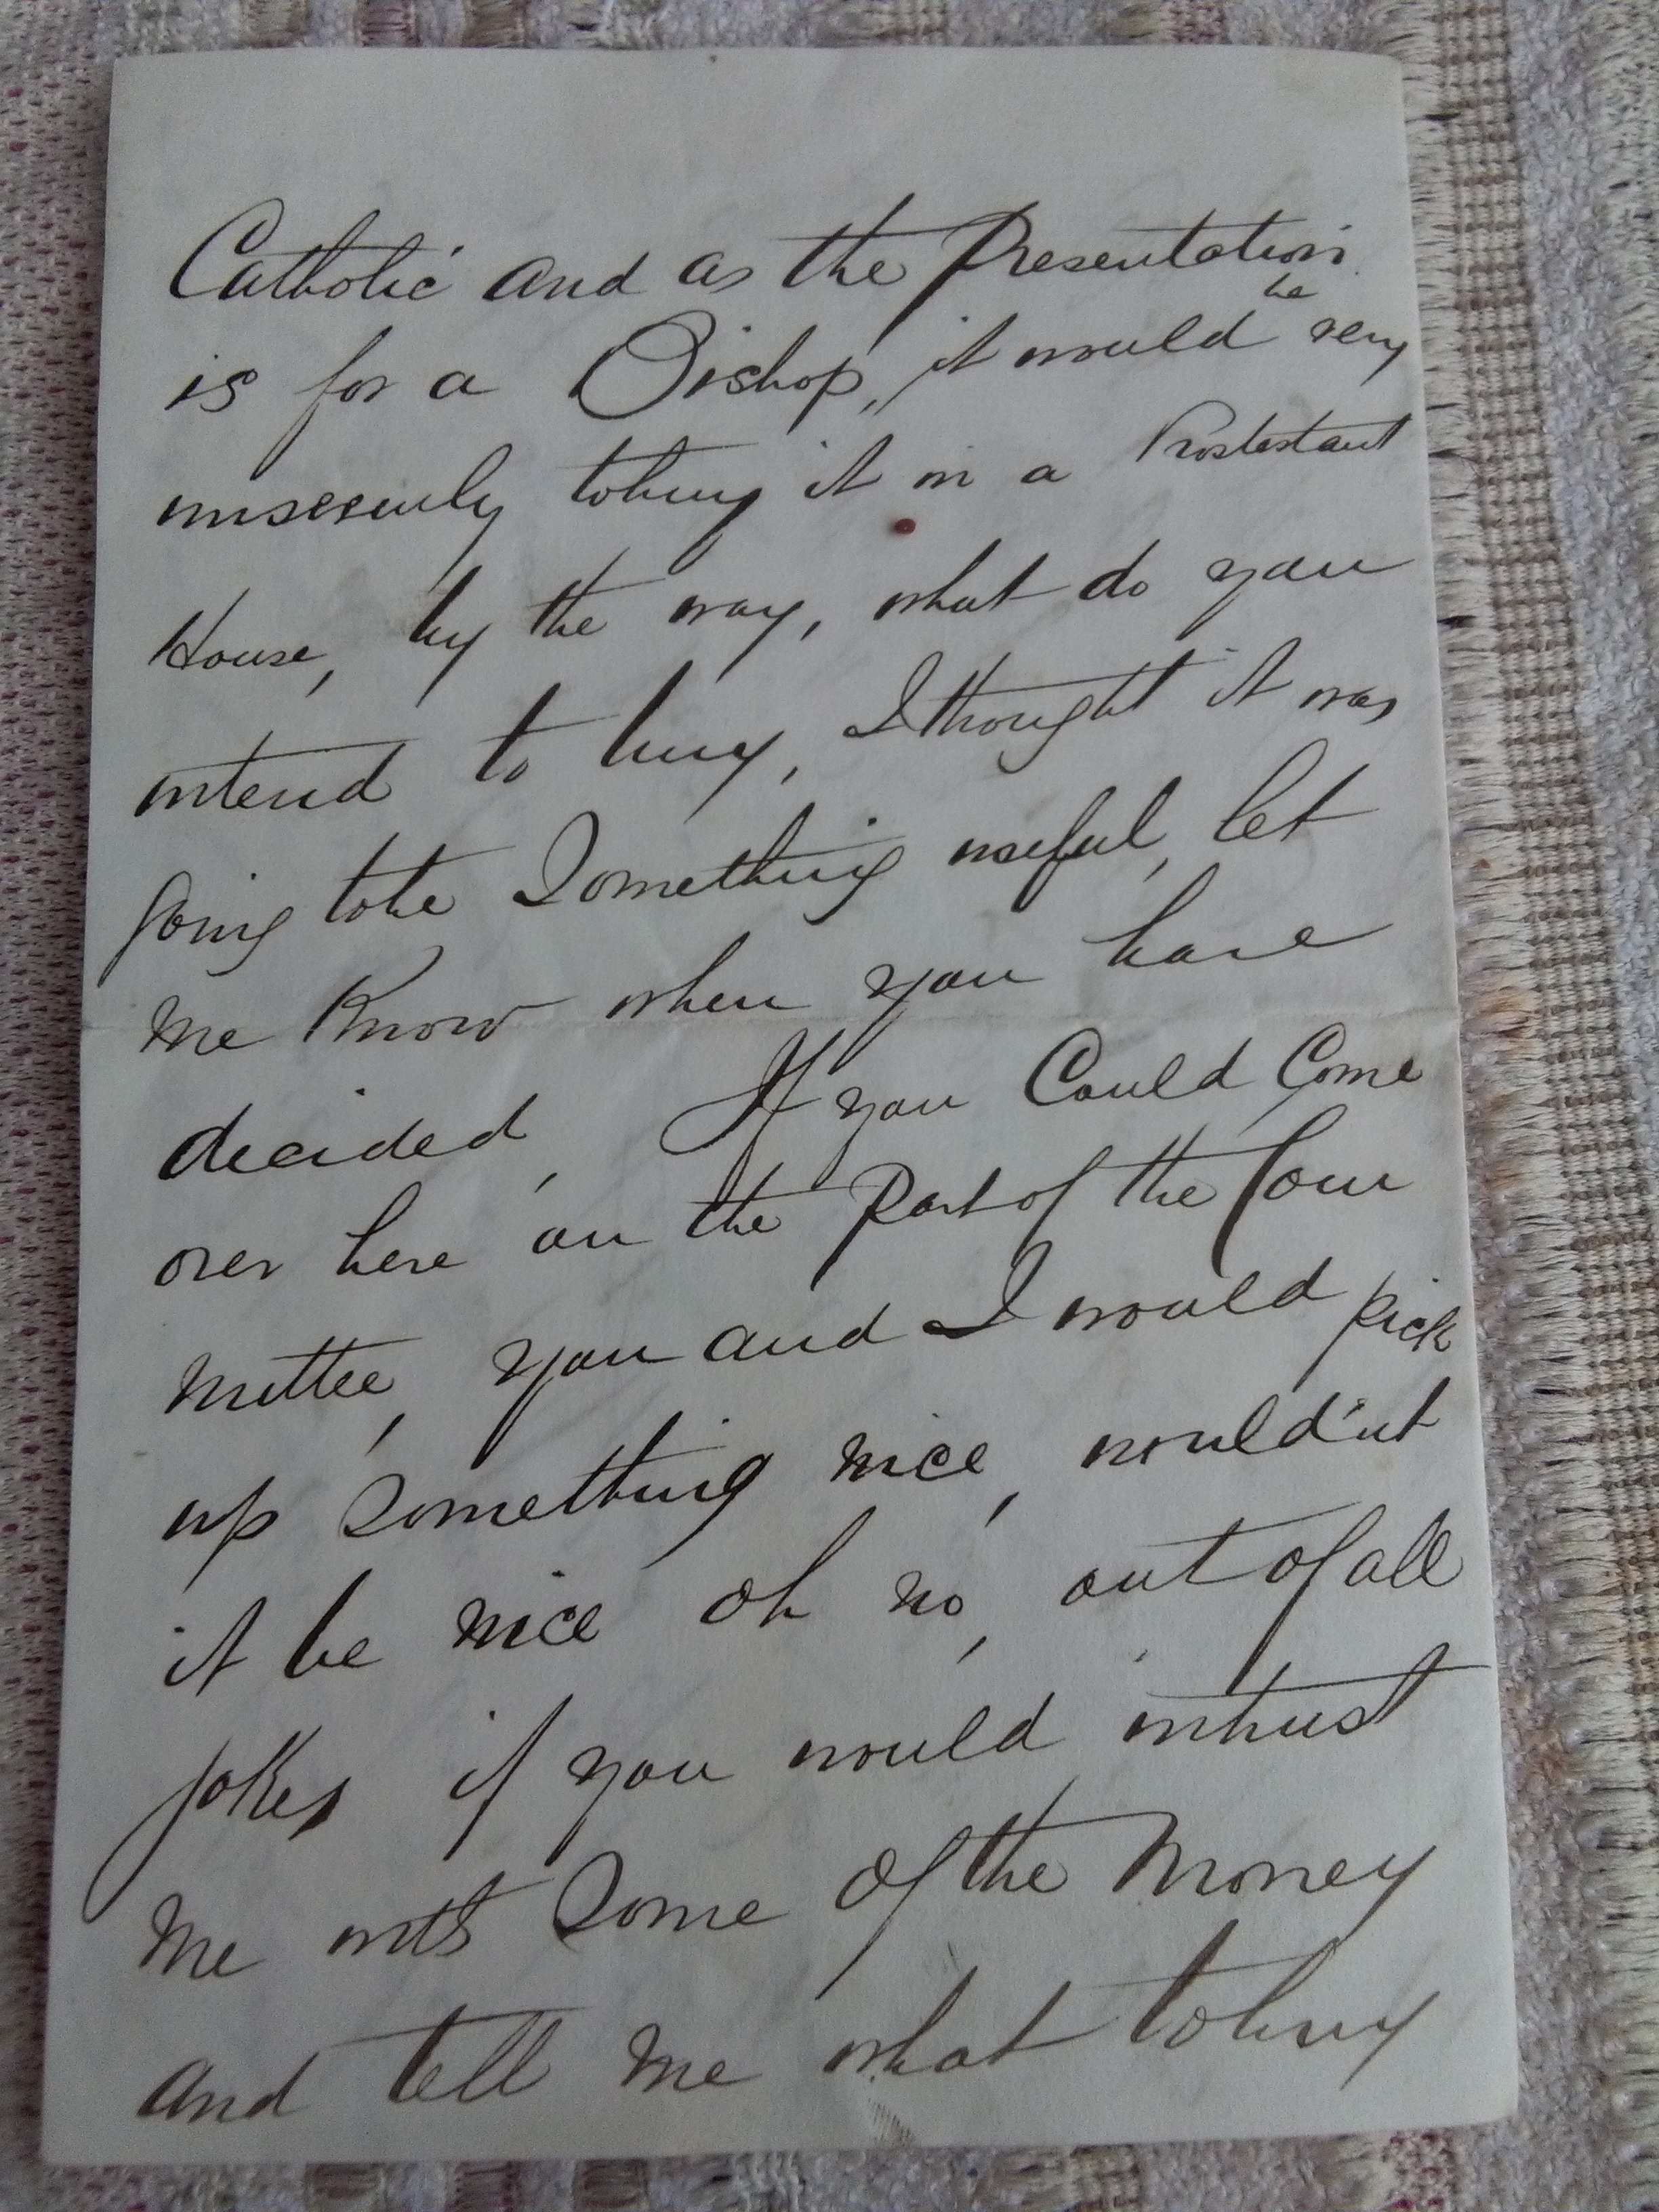 Catholic and as the Presentation
is for a Bishop, it would be very
unseemly tobuy it in a Prostestant
House, by the way, what do you
intend to buy, I thought it was
going tobe Something useful, let
me Know when you have
decided, If you Could Come
over here on the Part of the Com
mittee, you and I would pick
up Something nice, would'nt
it be nice oh no, out of all
jokes if you would intrust
me with Some of the Money
and tell me what tobuy